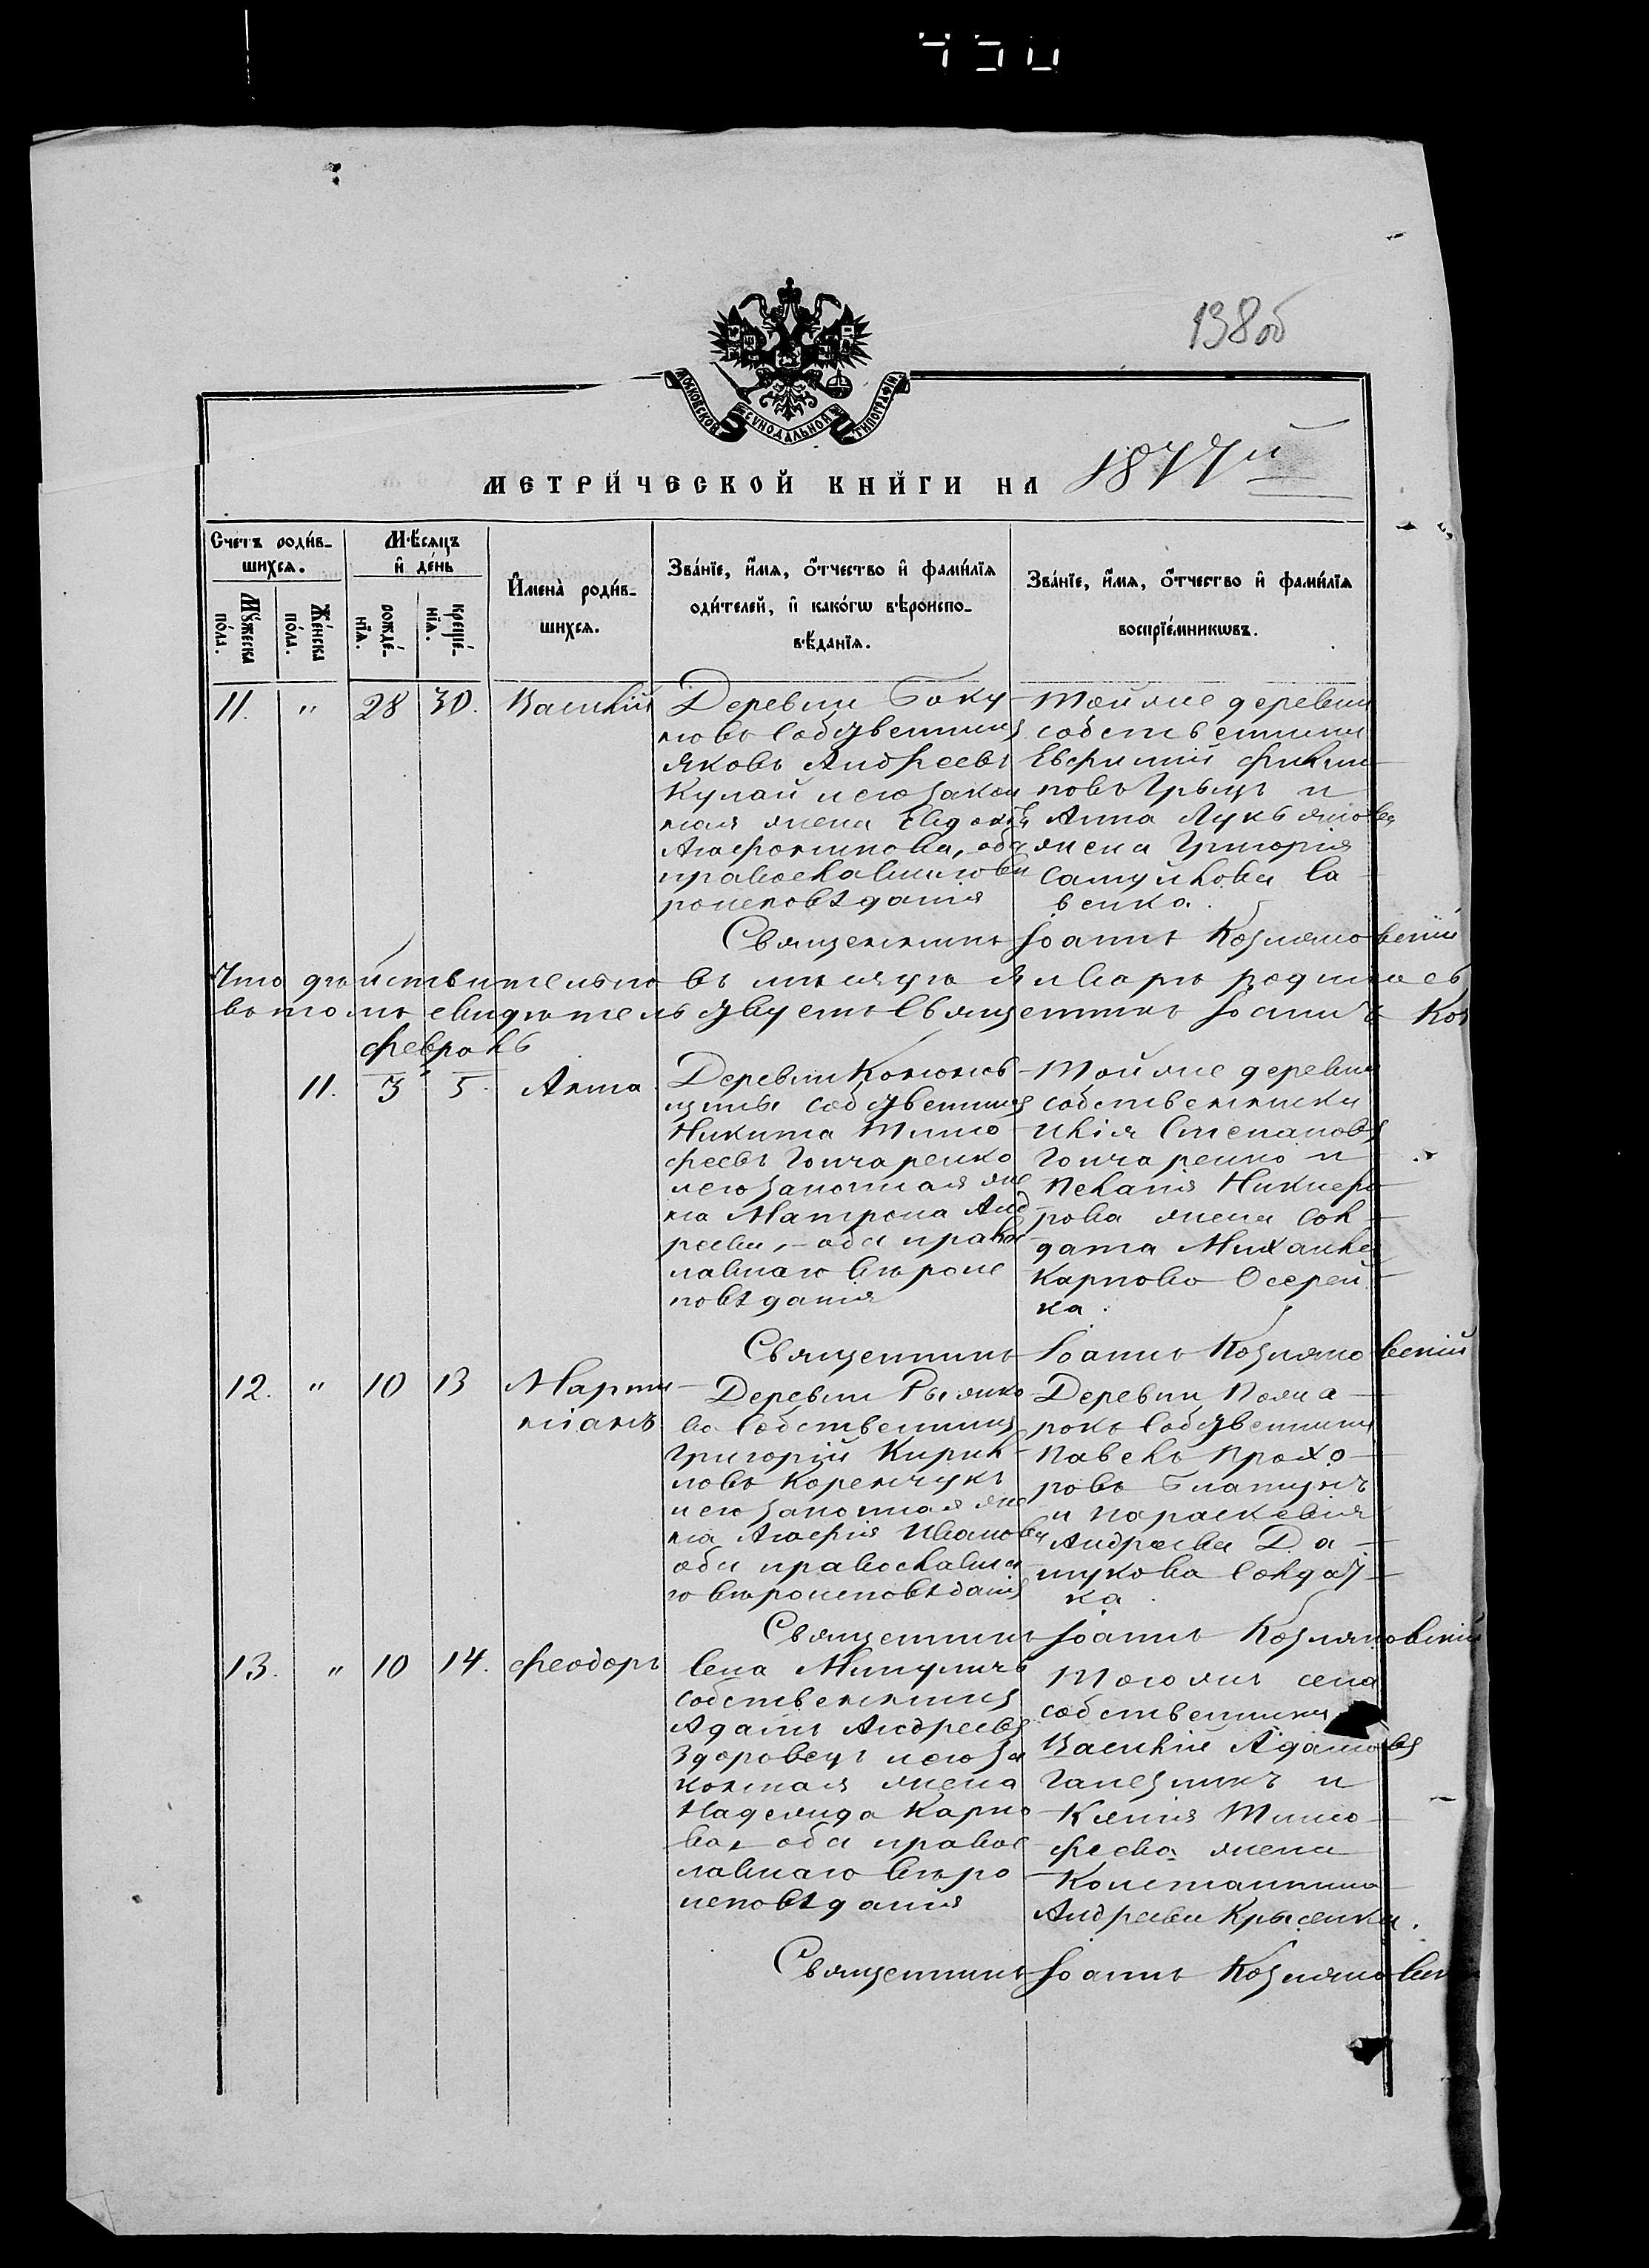 450
138об
МОСКОВСКОЙ СУНОДАЛЬНОЙ ТИПОГРАФІИ
МЕТРИ́ЧЕСКОЙ КНИ́ГИ НА 1877й
Счетъ роди́в-
шихсѧ.
Мꙋ́жеска
по́ла.
Же́нска
по́ла.
Мѣ́сяцъ
и҆ де́нь
рожде́-
нїѧ.
креще́-
нїѧ.
И҆мена̀ роди́в-
шихсѧ.
Зва́нїе, и҆́мѧ, ѻ҆́тчество и҆ фами́лїѧ
оди́телей, и҆ како́гѡ вѣроиспо-
вѣ́данїѧ.
Зва́нїе, и҆́мѧ, ѻ҆́тчество и҆ фами́лїѧ
воспрїе́мникѡвъ.
11. " 28 30. Василій
Деревни Баку
новъ собственникъ
Яковъ Андреевъ
Кулай и его закон
ная жена Евдокія
Агафоникова, оба
православнаго вѣ
роисповѣданія
Той же деревни
собственники
Евфимій
Грыцъ и
Анна Лукьянова
жена Григорія
Самуйлова Са
венка.
Священникъ Іоаннъ Козляковскій
Что дѣйствительно въ мѣсяцѣ Январѣ родилось
въ томъ свидѣтельствуетъ Священникъ Іоаннъ Коз
Февраль
11. 3 5. Анна
Деревни
щины собственникъ
Никита Тимо
феевъ Гончаренко
и его законная же
на Матрона Анд
реева, – оба правос
лавнаго вѣроис
повѣданія
Той же деревни
собственники
Илія Степановъ
Гончаренко и
Пелагія Никифо
рова жена сол
дата Михаила
Карпова Осерей
ка.
Священникъ Іоаннъ Козляковскій
12. " 10 13 Марти
ніанъ
Деревни
ва собственникъ
Григорій Кирил
ловъ Коренчукъ
и его законная же
на Агафія Иванова
оба православна
го вѣроисповѣданія
Деревни Пожа
рокъ собственникъ
Павелъ Прохо
ровъ
и Параскевія
Андреева Да
шукова солдат
ка.
Священникъ Іоаннъ Козляковскій
13. " 10 14. Феодоръ
Села Микуличъ
собственникъ
Адамъ Андреевъ
Здоровецъ и его за
конная жена
Надежда Карпо
ва, – оба правос
лавнаго вѣро
исповѣданія
Того же села
собственники
Василій Адамовъ
и
Ксенія Тимо
феева жена
Константина
Андреева Крысенка.
Священникъ Іоаннъ Козляковск